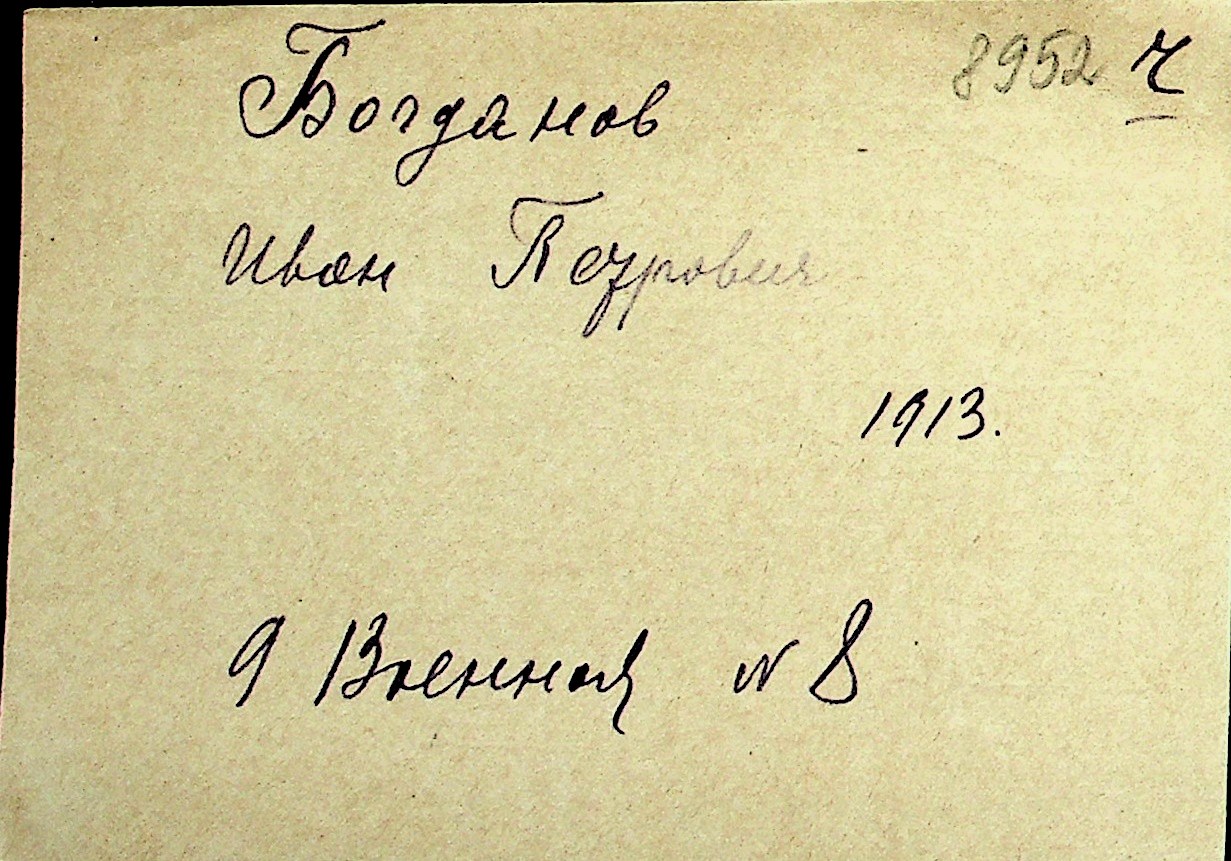 8952 ч
Богданов
Иван Петрович
1913.
9 Военная № 8